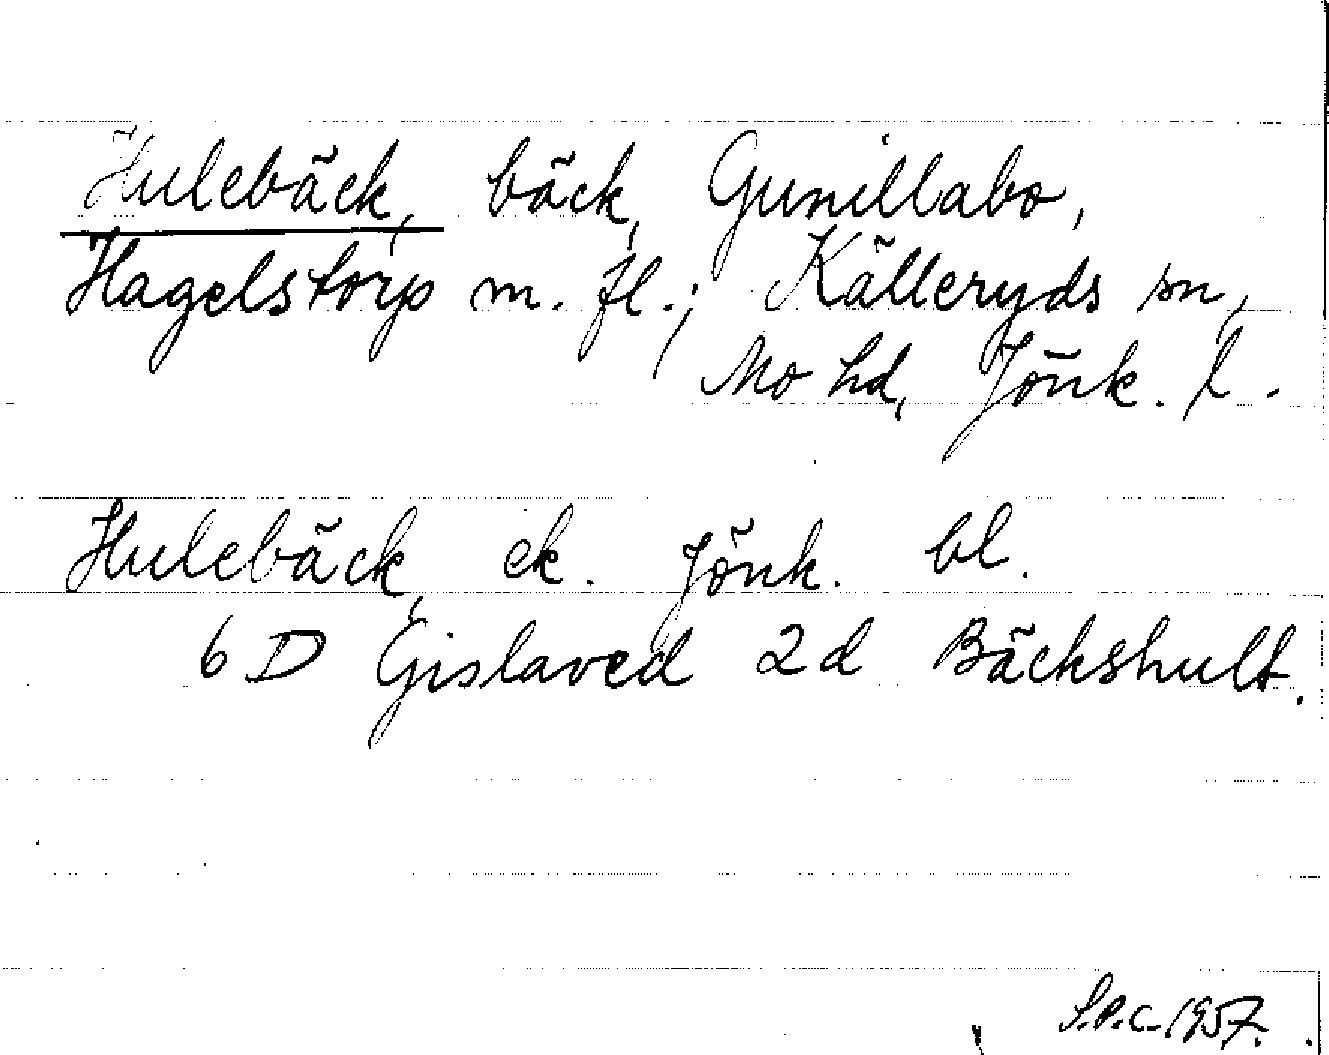 Hulebäck, bäck, Gunillabo,
Hagelstorp m. fl.; Källeryds sn,
Mo hd, Jönk. l.
Hulebäck, ek. Jönk. bl.
6 D Gislaved 2d Bäckshult.
S.P.C. 1957.